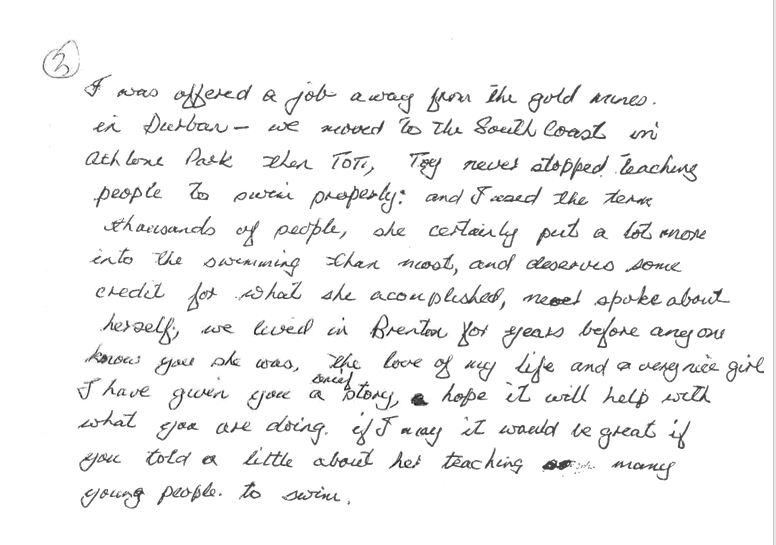 3
I was offered a job away from the gold mines.
in Durban – we moved to the South Coast in
Athlone Park then TOTI, Toy never stopped teaching
people to swim properly: and I used the term
thousands of people, she certainly put a lot more
into the swimming than most, and deserves some
credit for what she acomplished, never spoke about
herself, we lived in Brenton for years before anyone
know you she was, the love of my life and a very nice girl
I have given you a brief story, hope it will help with
what you are doing. if I may it would be great if
you told a little about her teaching many
young people. to swim.